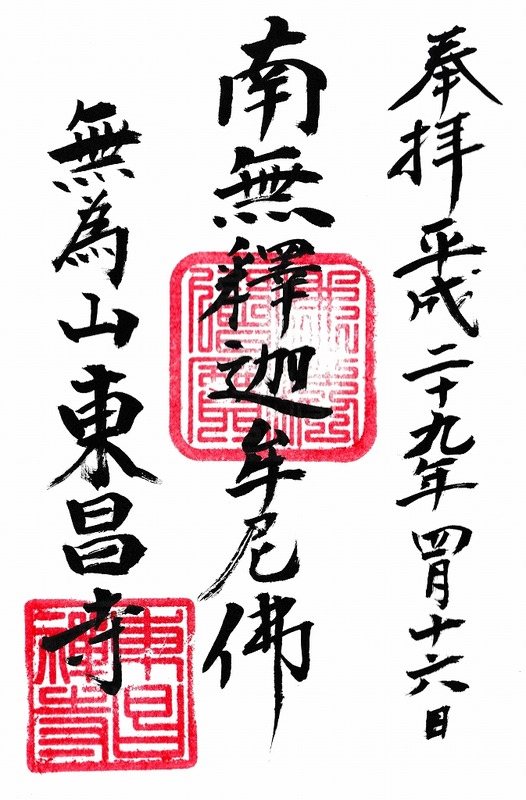 奉拝 平成二十九年四月十六日
南無釋迦牟尼佛
無為山東昌寺
東昌禅寺